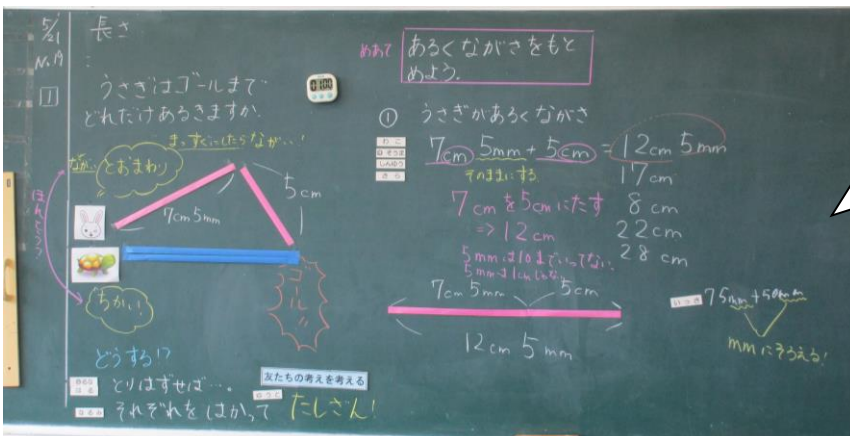 5/21
長さ
1
うさぎはゴールまで
どれだけあるきますか.
まっすぐにしたらながい!
ながい
とおまわり
ほんとう?
7cm 5mm
5cm
ゴール!!
ちかい
どうする!?
とりはずせば…。
それぞれをはかって たしざん!
友たちの考えを考える
めあて
あるくながさをもと
めよう.
① うさぎがあるくながさ
7cm 5mm + 5cm = 12cm 5mm
そのままにする
17cm
7cmを5cmにたす
8cm
⇒12cm
22cm
28cm
5mmは10までいってない.
7cm 5mm
5cm
12cm 5mm
75mm+50mm
mmにそろえる!